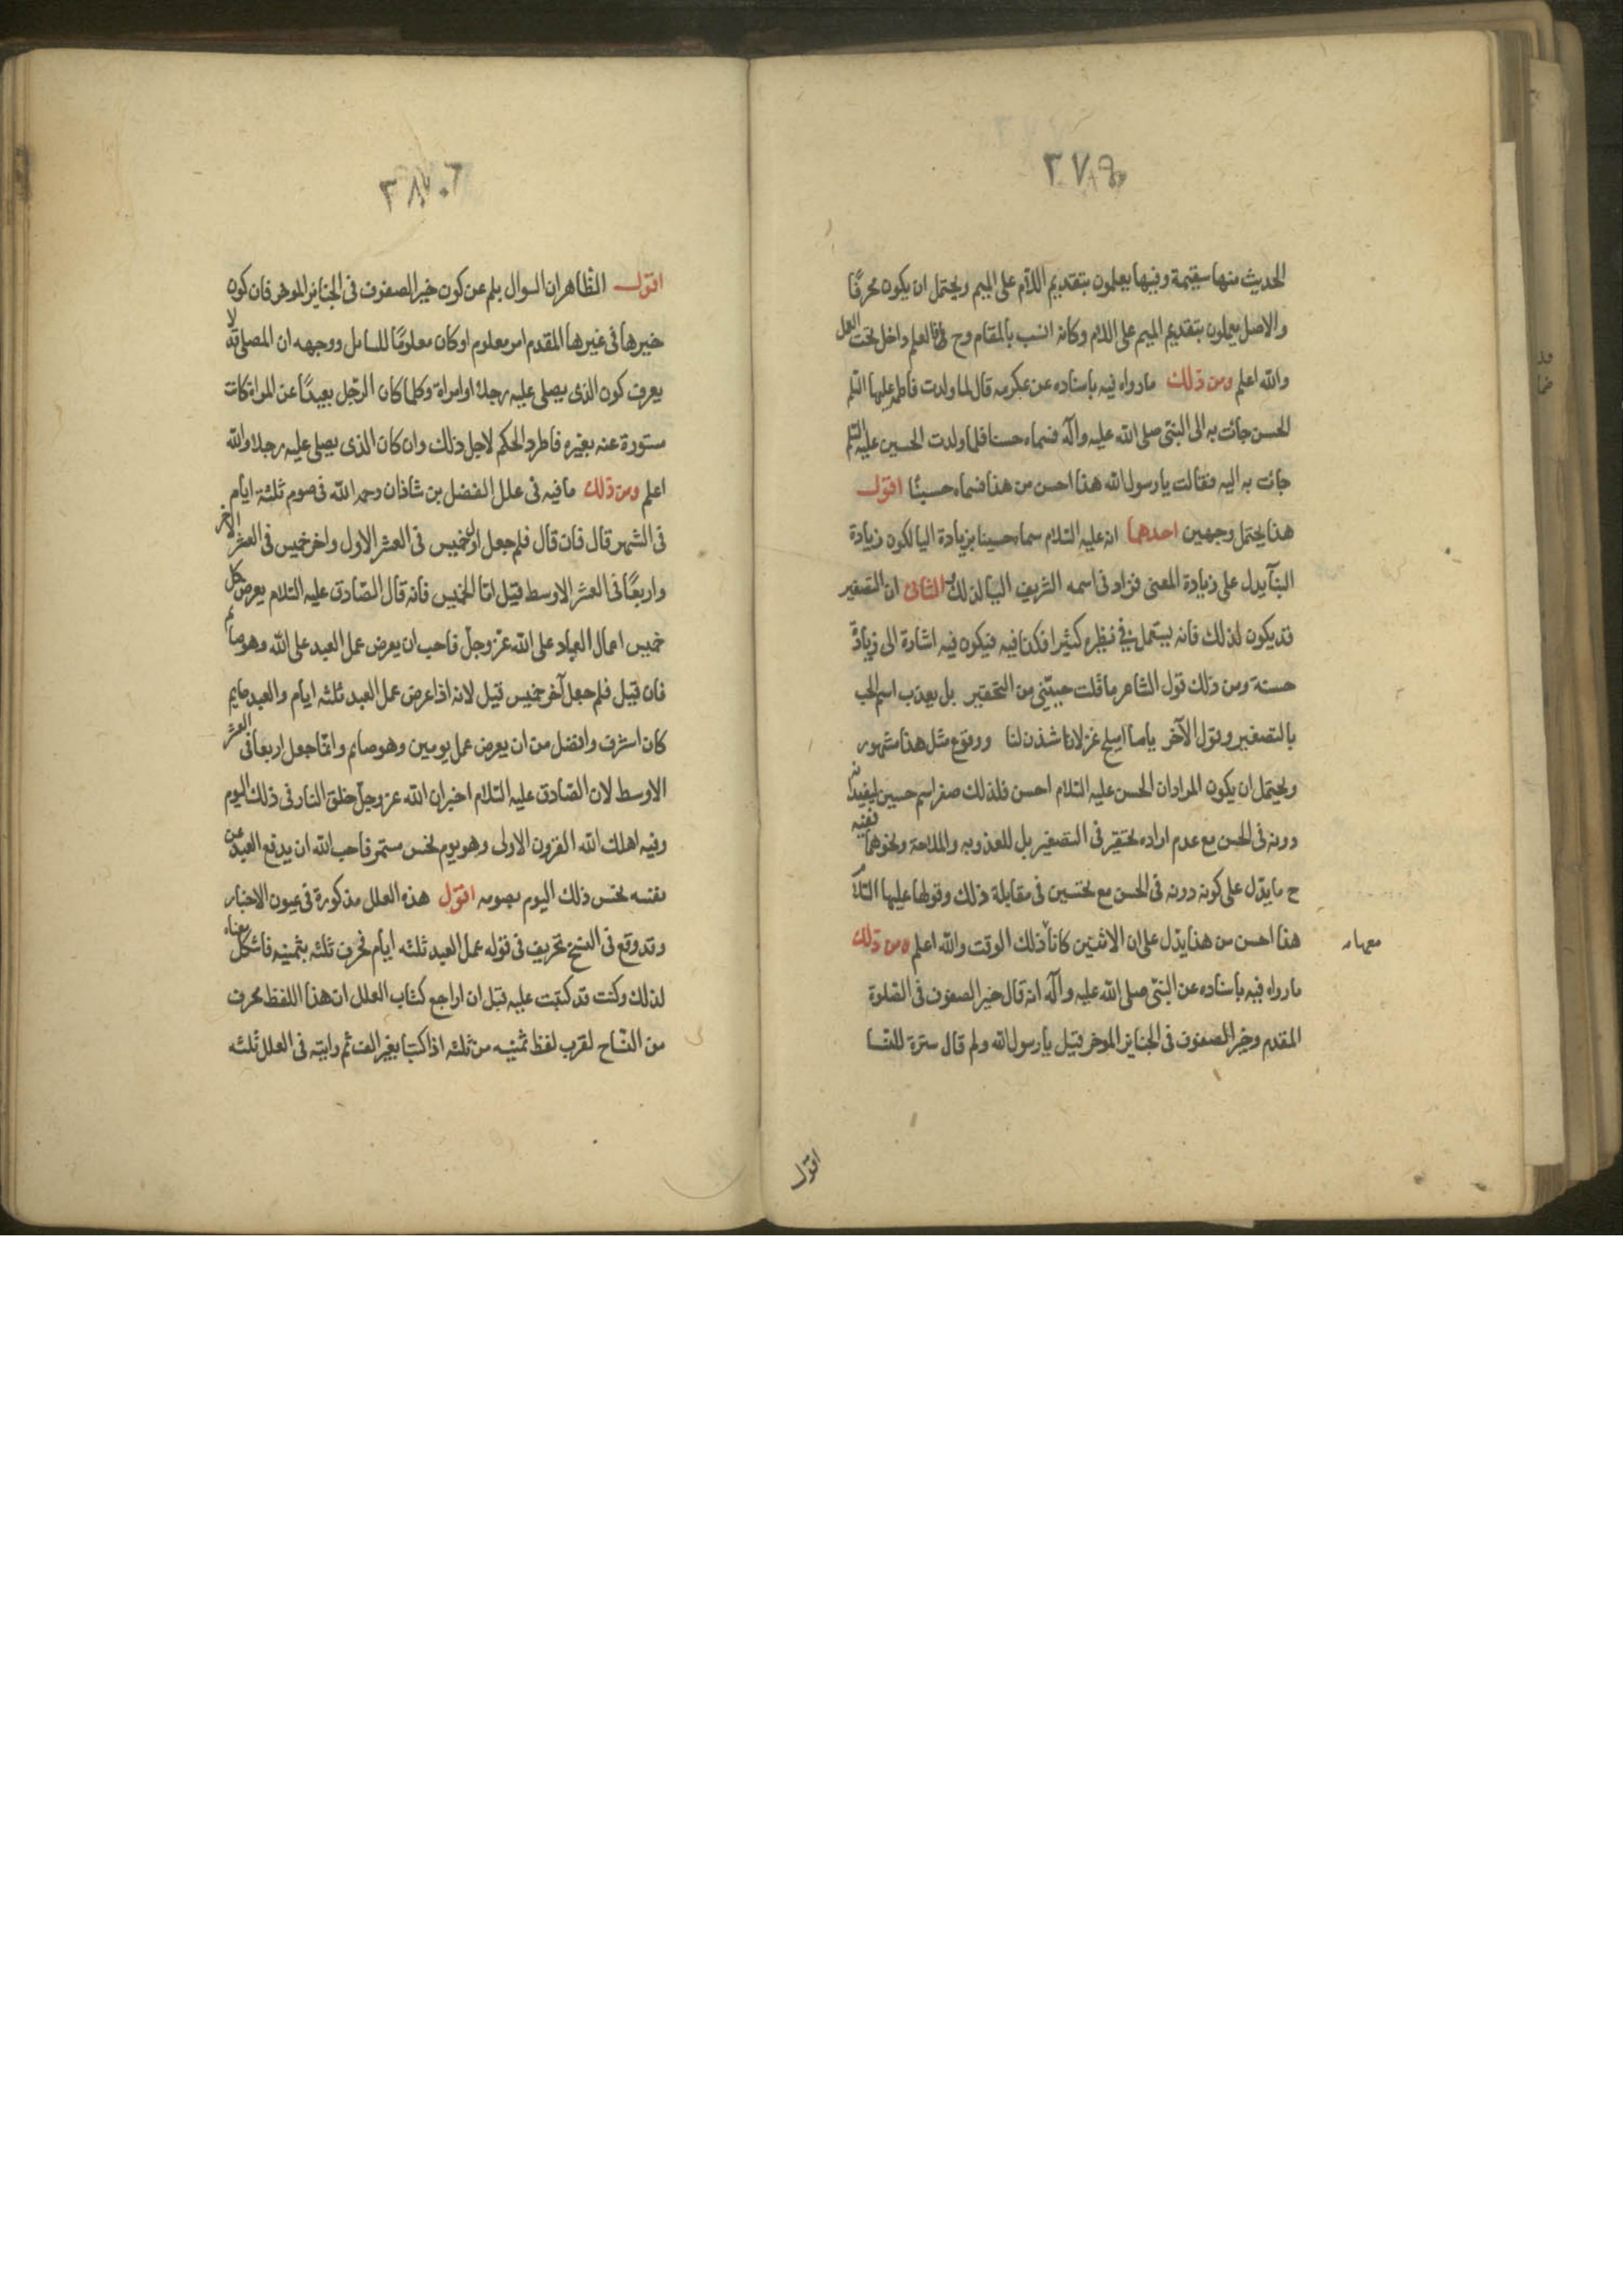 ٢٧٩
الحديث منها سقيمة وفيها يعلمون بتقديم اللام على الميم ويحتمل ان يكون محرفًا
والاصل يعملون بتقديم الميم على اللام وكانه انسب بالمقام وح فالعلم داخل تحت العمل
والله اعلم ومن ذلك ما رواه فيه باسناده عن عكرمه قال لما ولدت فاطمة عليها السلم
الحسن جائت به الى النبى صلى الله عليه وآله فسماه حسنا فلما ولدت الحسين عليه السلم
جائت به اليه فقالت يا رسول الله هذا احسن من هذا فسماه حسينًا اقول
هذا يحتمل وجهين احدهما انه عليه السلام سماه حسينا بزيادة اليا لكون زيادة
البنآ يدل على زيادة المعنى فزاد فى اسمه الشريف اليا لذلك الثانى ان التصغير
قد يكون لذلك فانه يستعمل فى نظيره كثيرا فكذا فيه فيكون فيه اشارة الى زيادة
حسنة ومن ذلك قول الشاعر ما قلت حبيّبى من التحقير بل يعذب اسم الحب
بالتصغير وقول الآخر ياما اميلح غزلانا شذن لنا ووقوع مثل هذا مشهور
ويحتمل ان يكون المراد ان الحسن عليه السلام احسن فلذلك صغر اسم حسين ليفيد انه
دونه فى الحسن مع عدم اراده تحقير فى التصغير بل للعذوبه والملاحة ونحوهما ففيه
ح ما يدّل على كونه دونه فى الحسن مع تحسين فى مقابلة ذلك وقولها عليها السلام
هذا احسن من هذا يدّل على ان الاثنين كانا ذلك الوقت والله اعلم ومن ذلك
معها
ما رواه فيه باسناده عن النبى صلى الله عليه وآله انه قال خير الصفوف فى الصلوة
المقدم وخير الصفوف فى الجنايز الموخر فقيل يا رسول الله ولم قال سترة للنسا
اقول
٢٨٠
اقول الظاهر ان السوال بلم عن كون خير الصفوف فى الجنايز الموخر فان كون
خيرها فى غيرها المقدم امر معلوم او كان معلومًا للسامل ووجهه ان المصلى قد لا
يعرف كون الذى يصلى عليه رجلا او امراة وكلما كان الرّجل بعيدًا عن المراة كانت
مستورة عنه بغيره فاطرد الحكم لاجل ذلك وان كان الذى يصلى عليه رجلا والله
اعلم ومن ذلك ما فيه فى علل الفضل بن شاذان رحمه الله فى صوم ثلثة ايام
فى الشهر قال فان قال فلم جعل اول خميس فى العشر الاول واخر خميس فى العشر الاخر
واربعًا فى العشر الاوسط قيل امّا الخميس فانه قال الصّادق عليه السلام يعرض كل
خميس اعمال العباد على الله عزّ وجلّ فاحب ان يعرض عمل العبد على الله وهو صايم
فان قيل فلم جعل آخر خميس قيل لانه اذا عرض عمل العبد ثلثه ايام والعبد صايم
كان اشرف وافضل من ان يعرض عمل يومين وهو صايم وانّما جعل اربعا فى العشر
الاوسط لان الصّادق عليه السّلام اخبر ان الله عز وجلّ خلق النار فى ذلك اليوم
وفيه اهلك الله القرون الاولى وهو يوم نحس مستمر فاحب الله ان يدفع العبد عن
نفسه نحس ذلك اليوم بصومه اقول هذه العلل مذكورة فى عيون الاخبار
وقد وقع فى النسخ تحريف فى قوله عمل العبد ثلثه ايام فحرف ثلثه بثمنيه فاشكل معناه
لذلك وكنت قد كتبت عليه قبل ان اراجع كتاب العلل ان هذا اللفظ محرف
من النّساخ لقرب لفظ ثمنيه من ثلثه اذا كتبا بغير الف ثم رايته فى العلل ثلثه